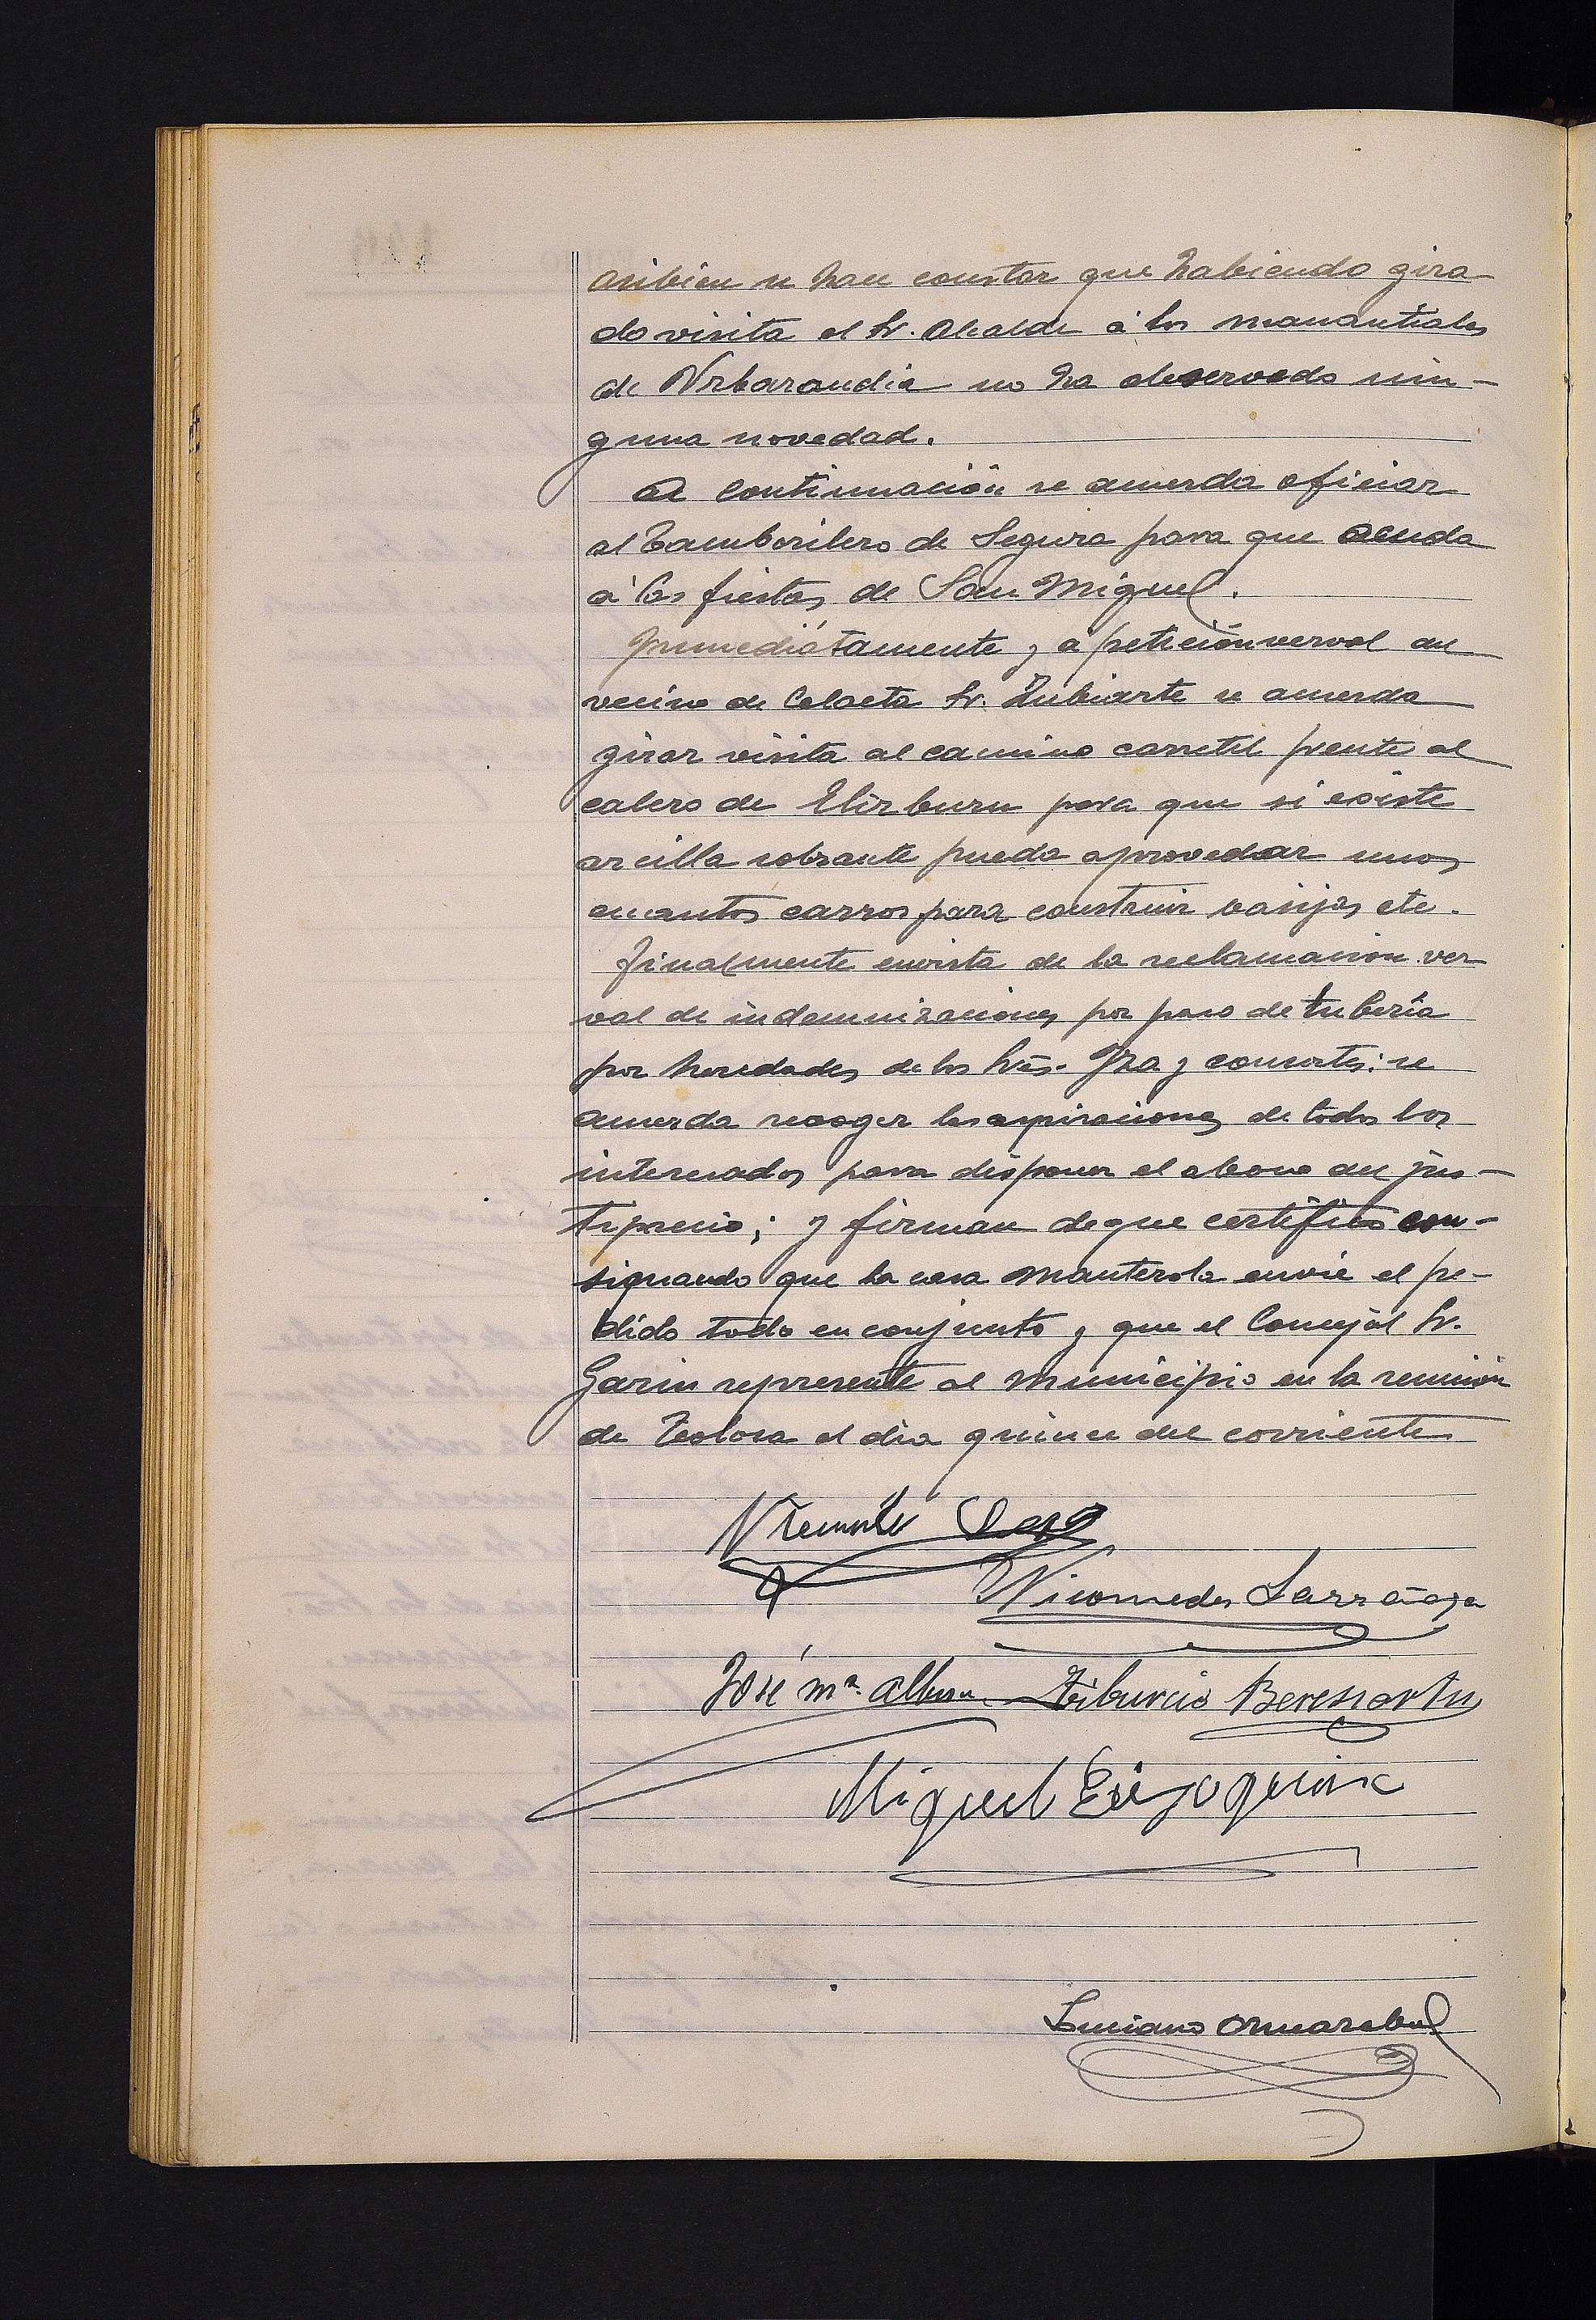 asibien se hace constar que habiendo gira-
do visita el Sr. Alcalde á los manantiales
de Urbarandia no ha observado nin-
guna novedad.
A continuación se acuerda oficiar
al tamborilero de Segura para que acuda
á las fiestas de San Miguel.
Ynmediátamente y á petición verval del
vecino de Celaeta Sr. Zubiarte se acuerda
girar visita al camino carretil frente al
calero de Elizburu para que si existe
arcilla sobrante pueda aprovechar unos
cuantos carros para construir vasijas etc.
Finalmente en vista de la reclamacion ver
val de indemnizaciones por paso de tubería
por heredades de los Sres. Yza y consortes: se
acuerda recoger las aspiraciones de todos los
interesados para disponer el abono del jus-
tiprecio; y firman de que certifico con-
signando que la casa Manterola envie el pe-
dido todo en conjunto y que el Concejal Sr.
Garin represente al Municipio en la reunión
de Tolosa el dia quince del corriente
Vicente
Nicomedes Larrañaga
José Mª. Tiburcio Berasiartu
Miguel
Luciano Ormazabal